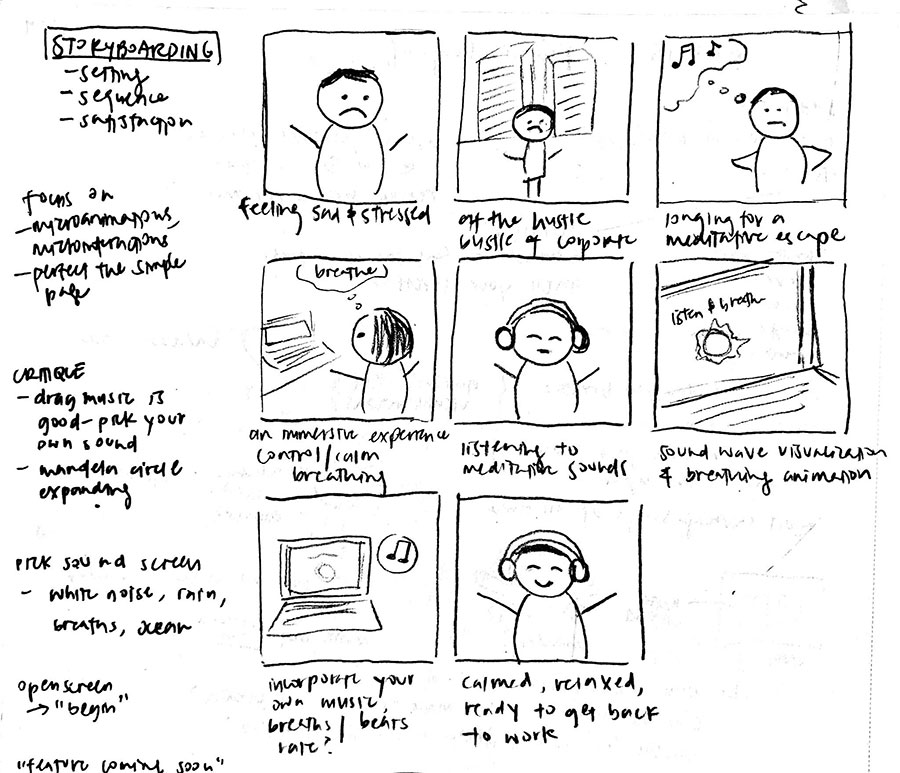 STORYBOARDING
- setting
- sequence
- satisfaction
focus on
- microanimations,
microinteractions
- perfect the simple
page
CRITIQUE
- drag music is
good - pick your
own sound
- mandela circle
expanding
pick sound screen
- white noise, rain,
breaths, ocean
open screen
→ "begin"
"feature coming soon"
feeling sad & stressed
off the hustle
bustle of corporate
longing for a
meditative escape
(breathe)
an immersive experience
control/calm
breathing
listening to
meditative sounds
listen & breath
sound wave visualization
& breathing animation
incorporate your
own music,
breaths / beats
rate?
calmed, relaxed,
ready to get back
to work